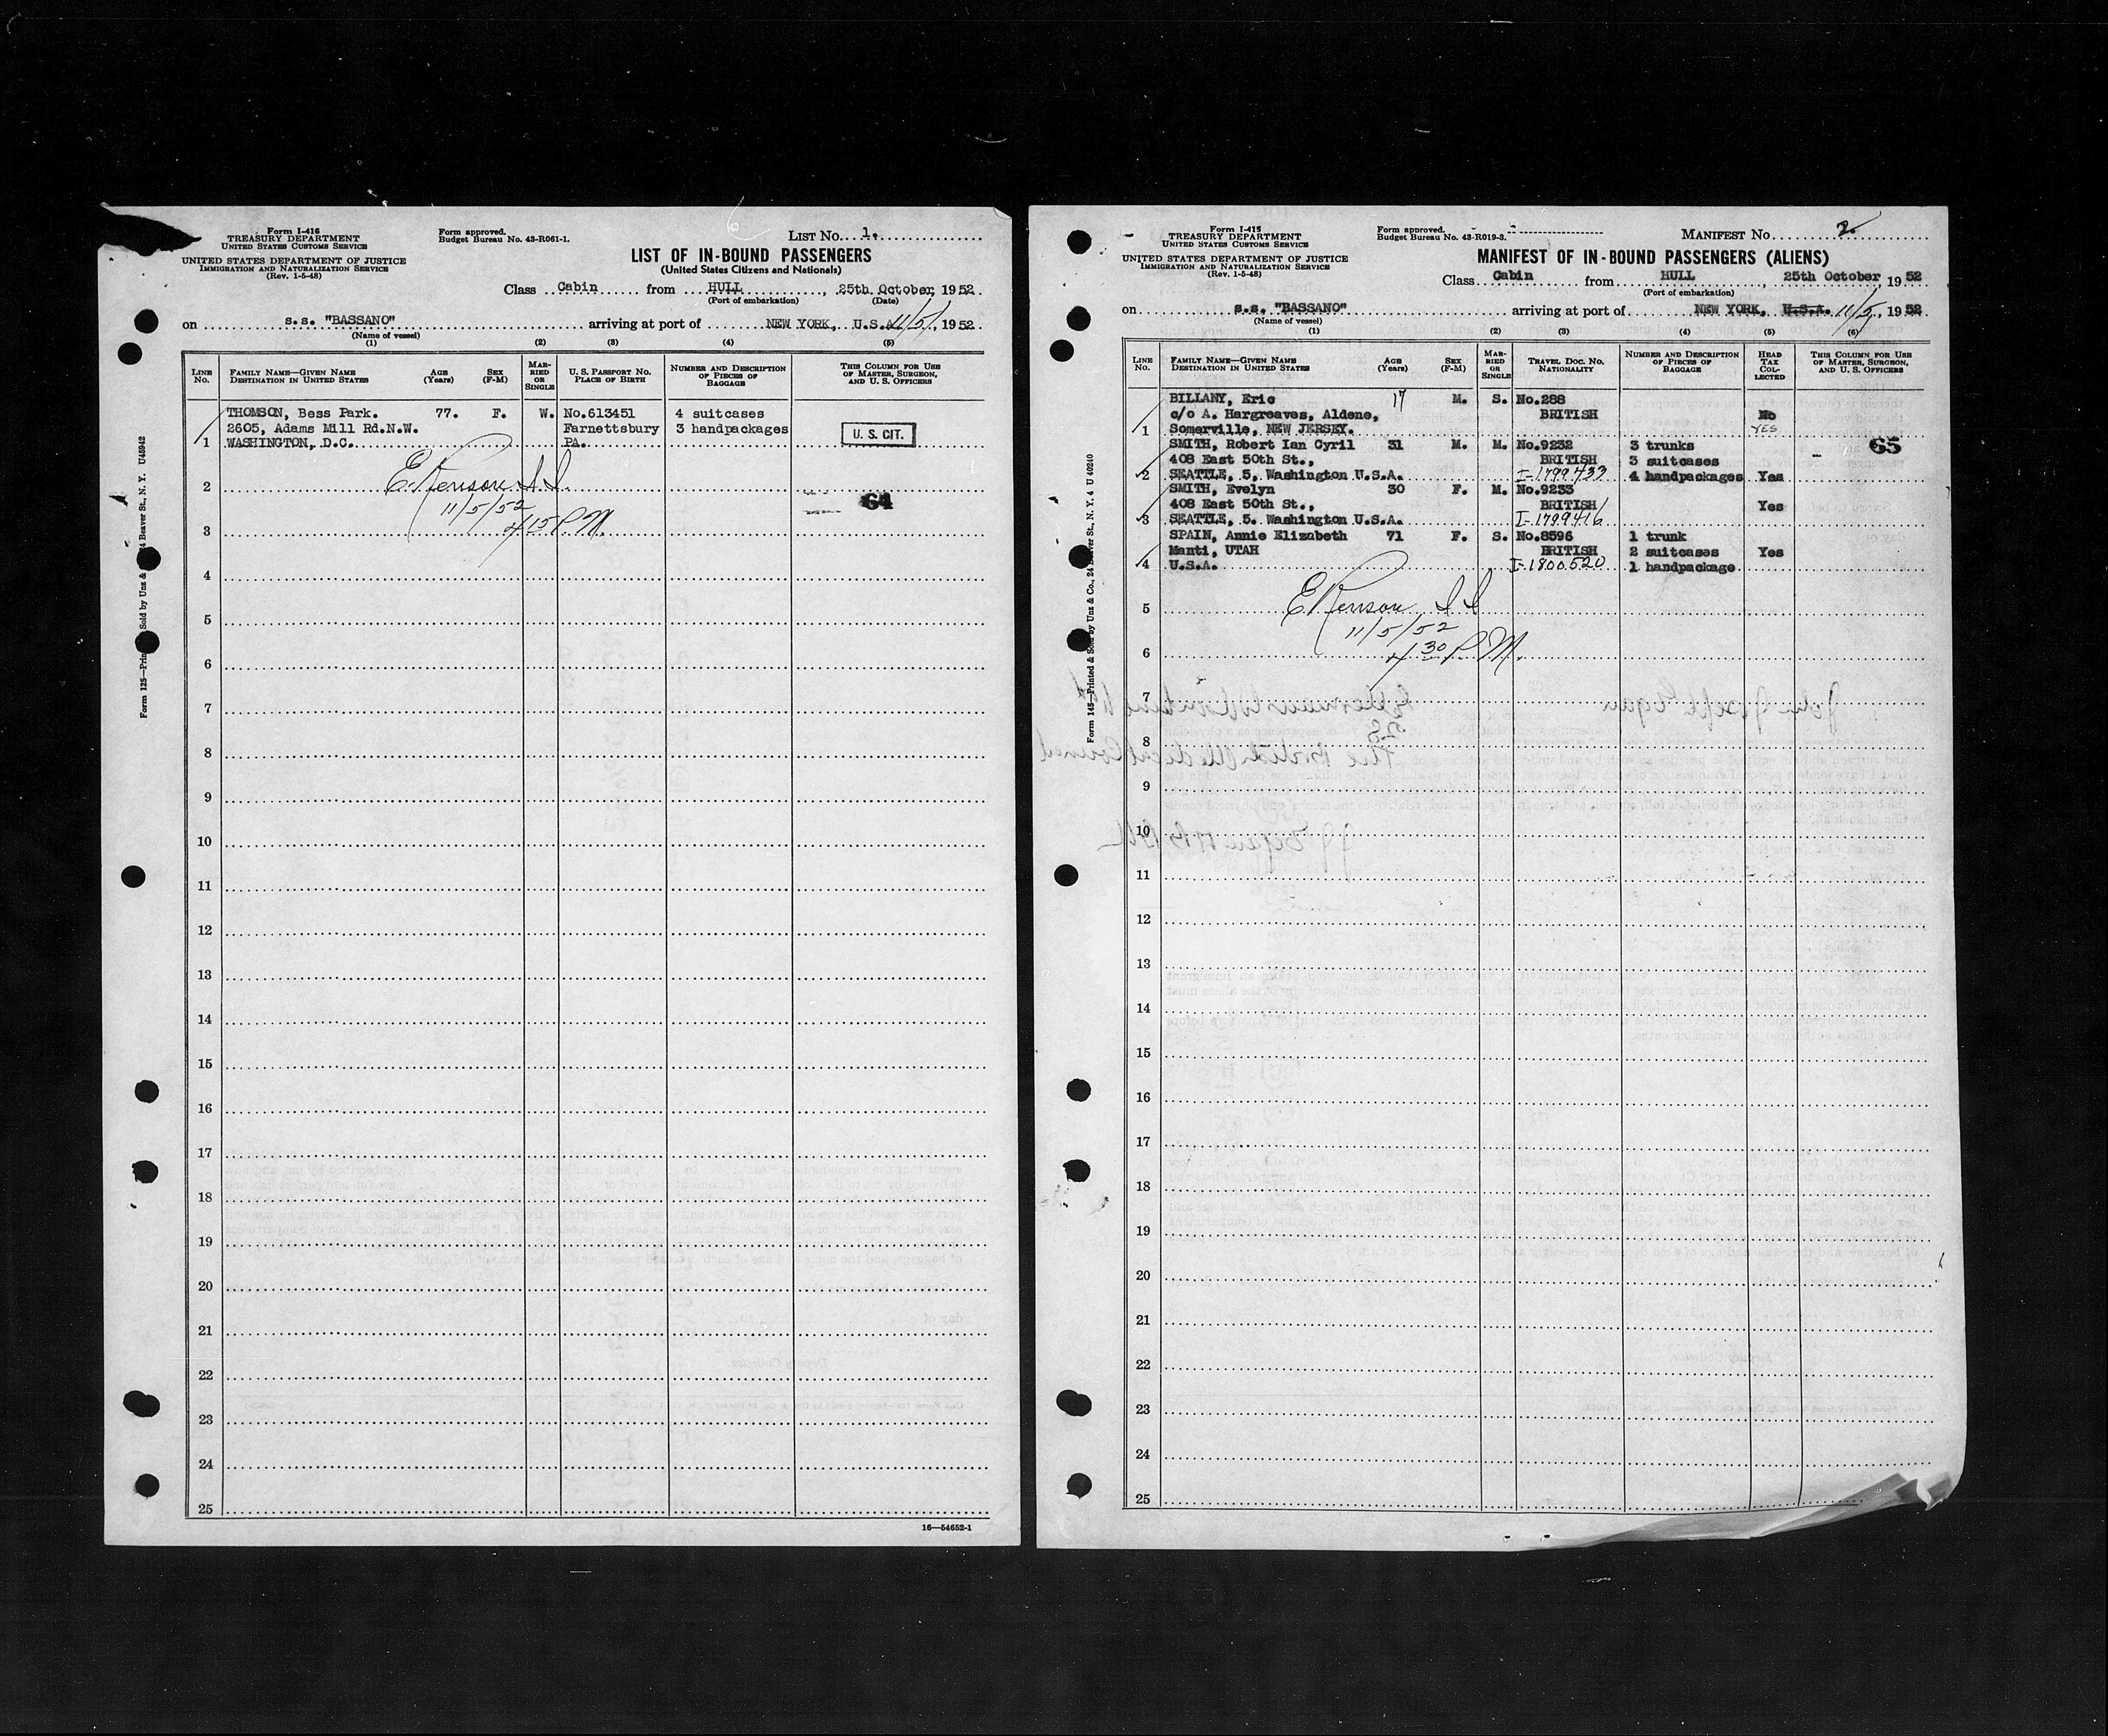 Form I-416
TREASURY DEPARTMENT
UNITED STATES CUSTOMS SERVICE
UNITED STATES DEPARTMENT OF JUSTICE
IMMIGRATION AND NATURALIZATION SERVICE
(Rev. 1-5-48)
Form approved.
Budget Bureau No. 43-R061-1.
LIST No. 1.
LIST OF IN-BOUND PASSENGERS
(United States Citizens and Nationals)
Class Cabin from HULL, 25th October, 1952
(Port of embarkation) (Date)
on s.s. "BASSANO" arriving at port of NEW YORK, U.S. 11/5/, 1952
(Name of vessel)
(1) (2) (3) (4) (5)
LINE No. FAMILY NAME—GIVEN NAME DESTINATION IN UNITED STATES AGE (Years) SEX (F-M) MARRIED OR SINGLE U. S. PASSPORT No. PLACE OF BIRTH NUMBER AND DESCRIPTION OF PIECES OF BAGGAGE THIS COLUMN FOR USE OF MASTER, SURGEON, AND U. S. OFFICERS
THOMSON, Bess Park. 77. F. W. No.613451 4 suitcases
2605, Adams Mill Rd.N.W. Farnettsbury 3 handpackages
1 WASHINGTON, D.C. PA. U. S. CIT.
2
11/5/52 64
3 4 15 P.M.
4
5
6
7
8
9
10
11
12
13
14
15
16
17
18
19
20
21
22
23
24
25
16—54652-1
Form I-415
TREASURY DEPARTMENT
UNITED STATES CUSTOMS SERVICE
UNITED STATES DEPARTMENT OF JUSTICE
IMMIGRATION AND NATURALIZATION SERVICE
(Rev. 1-5-48)
Form approved.
Budget Bureau No. 43-R019-3.
MANIFEST No. 2
MANIFEST OF IN-BOUND PASSENGERS (ALIENS)
Class Cabin from HULL, 25th October, 1952
(Port of embarkation)
on s.s. "BASSANO" arriving at port of NEW YORK, U.S.A. 11/5, 1952
(Name of vessel)
(1) (2) (3) (4) (5) (6)
LINE No. FAMILY NAME—GIVEN NAME DESTINATION IN UNITED STATES AGE (Years) SEX (F-M) MARRIED OR SINGLE TRAVEL DOC. No. NATIONALITY NUMBER AND DESCRIPTION OF PIECES OF BAGGAGE HEAD TAX COLLECTED THIS COLUMN FOR USE OF MASTER, SURGEON, AND U. S. OFFICERS
BILLANY, Eric 17 M. S. No.288
c/o A. Hargreaves, Aldene, BRITISH No
1 Somerville, NEW JERSEY. YES
SMITH, Robert Ian Cyril 31 M. M. No.9232 3 trunks 65
408 East 50th St., BRITISH 3 suitcases
2 SEATTLE, 5, Washington U.S.A. I-1799433 4 handpackages Yes
SMITH, Evelyn 30 F. M. No.9233
408 East 50th St., BRITISH Yes
3 SEATTLE, 5. Washington U.S.A. I-1799416
SPAIN, Annie Elizabeth 71 F. S. No.8596 1 trunk
Manti, UTAH BRITISH 2 suitcases Yes
4 U.S.A. I-1800520 1 handpackage
5
11/5/52
6 4 30 P.M.
7
8
9
10
11
12
13
14
15
16
17
18
19
20
21
22
23
24
25